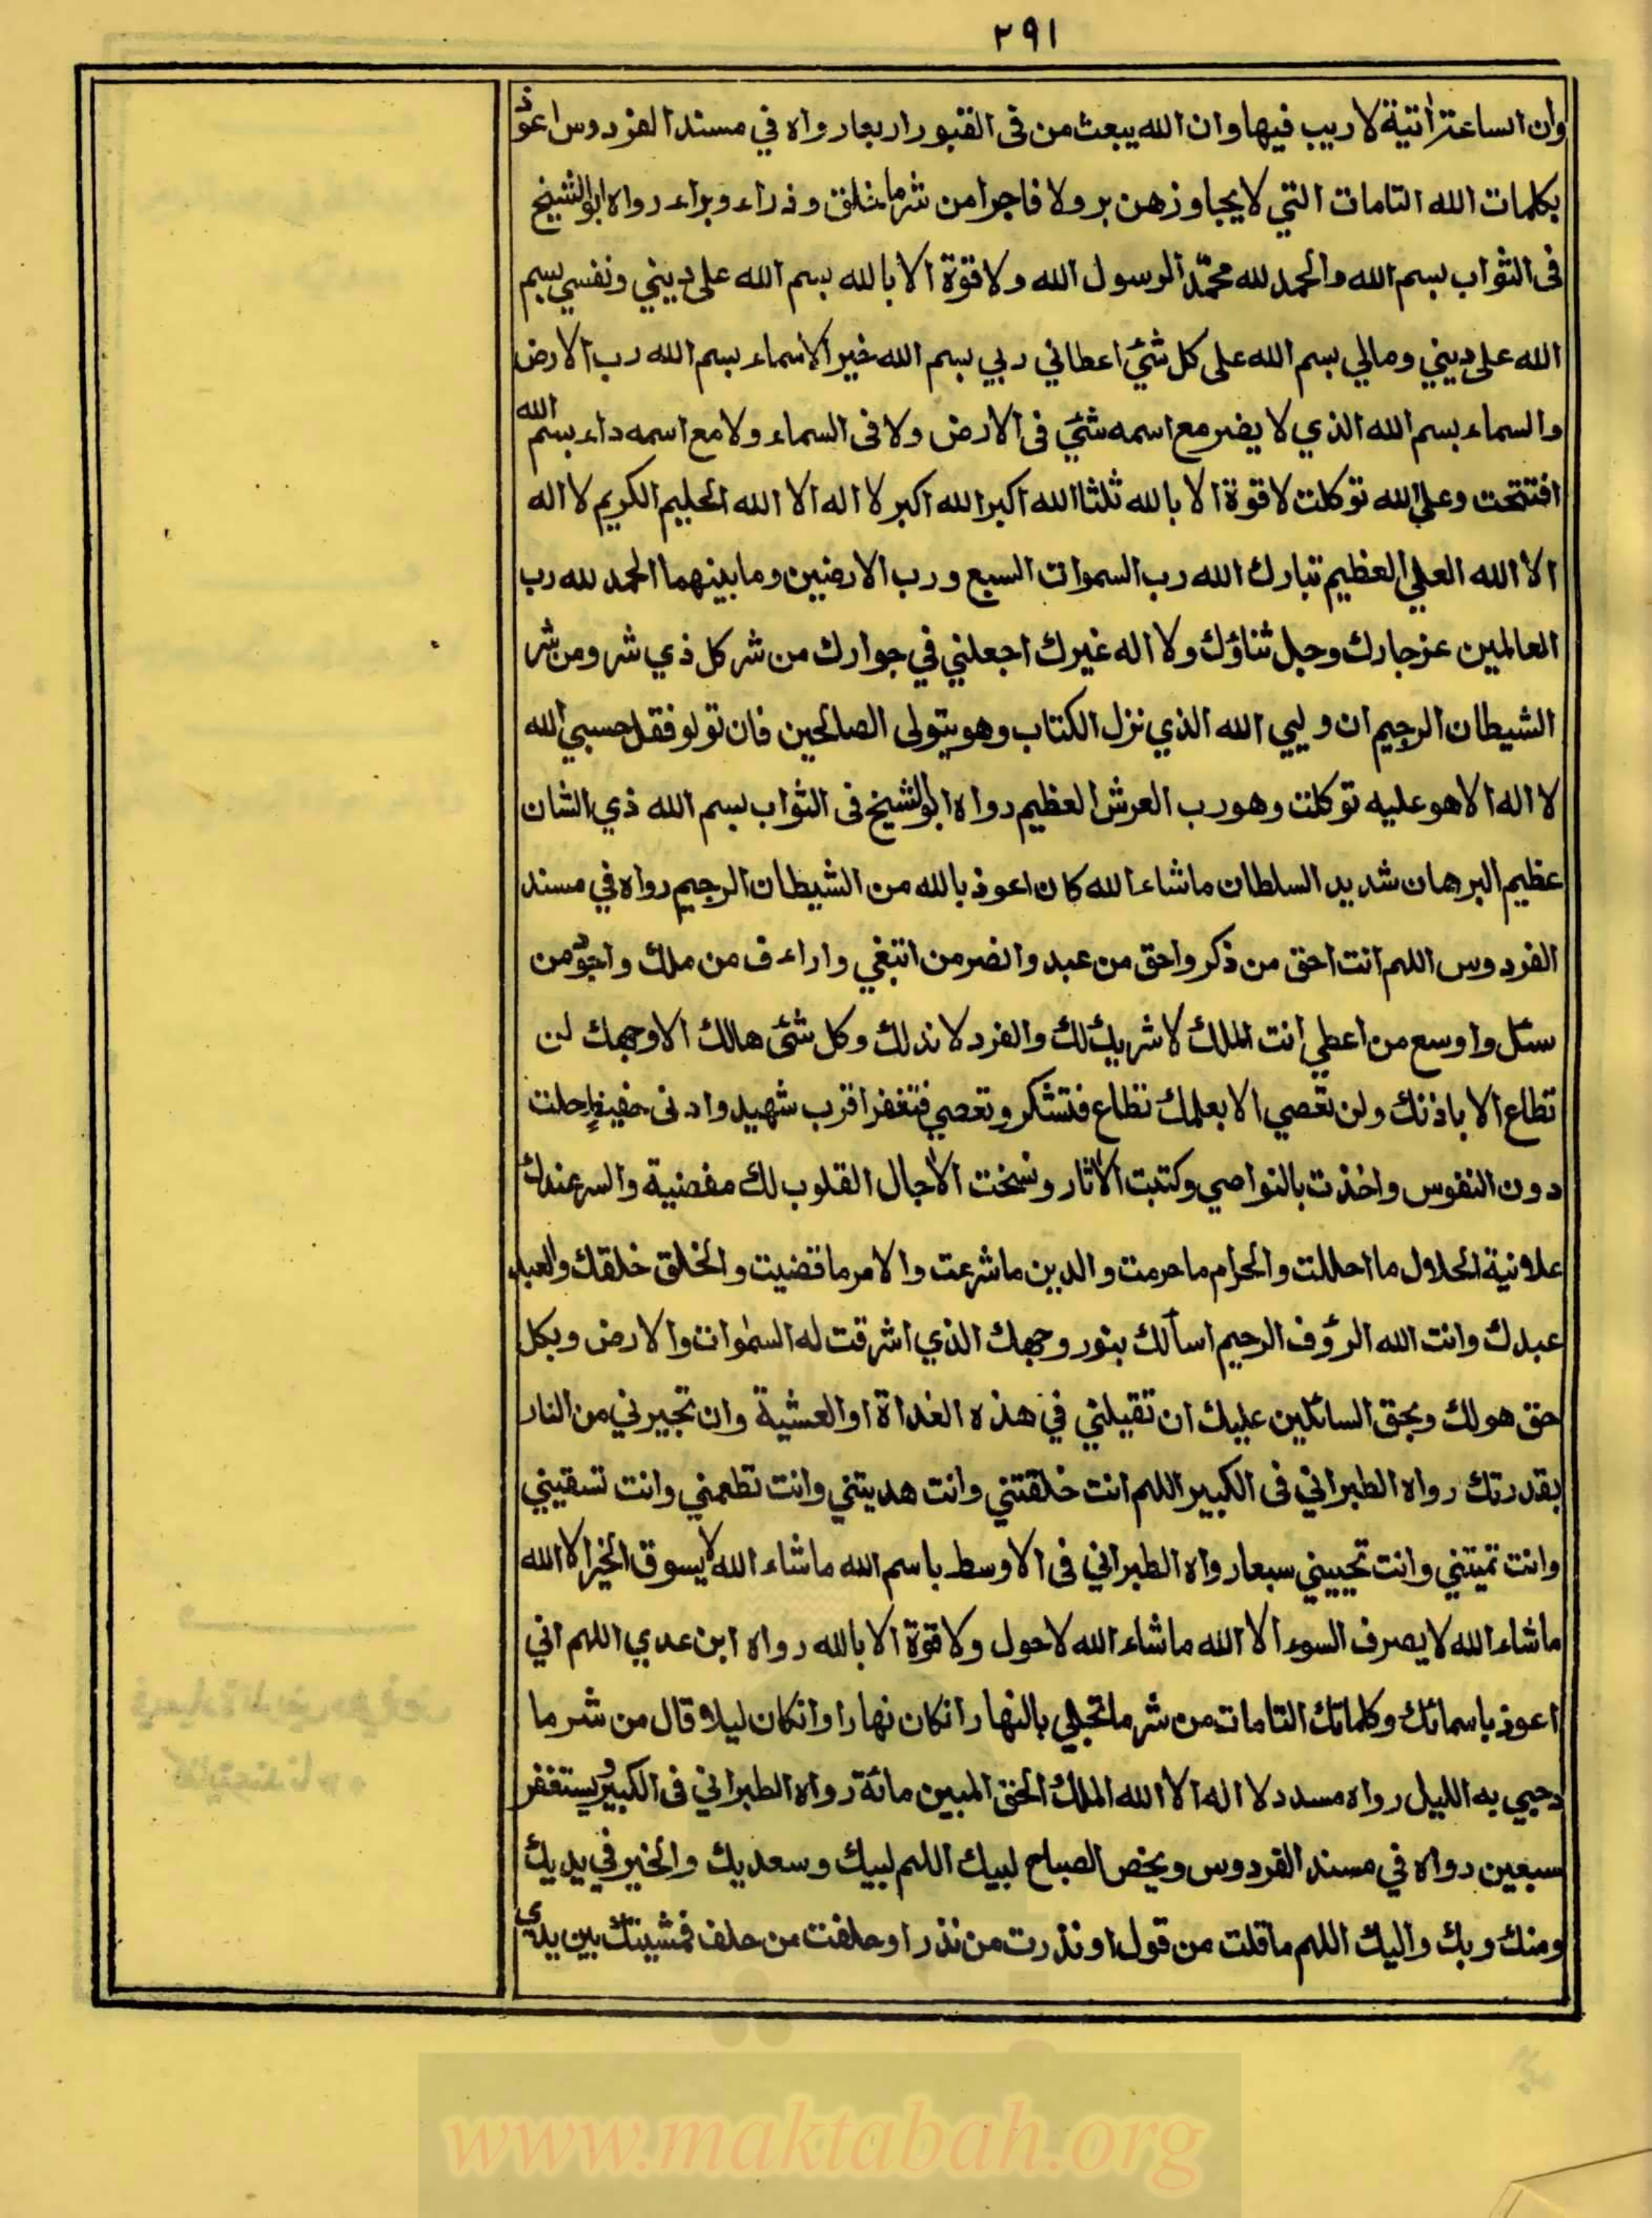 ٢٩١
وان الساعة اٰتية لا ريب فيها وان الله يبعث من فى القبور اربعا رواه في مسند الفردوس اعوذ
بكلمات الله التامات التي لا يجاوزهن بر ولا فاجر من شر ما خلق وذراء وبراء رواه ابو الشيخ
فى الثواب بسم الله والحمد لله محمّد الرسول الله ولا قوة الا بالله بسم الله على ديني ونفسي بسم
الله على ديني ومالي بسم الله على كل شئ اعطاني ربي بسم الله خير الاسماء بسم الله رب الارض
والسماء بسم الله الذي لا يضر مع اسمه شئ فى الارض ولا فى السماء ولا مع اسمه داء بسم الله
افتتحت وعلى الله توكلت لا قوة الا بالله ثلثا الله اكبر الله اكبر لا اله الا الله الحليم الكريم لا اله
الا الله العلي العظيم تبارك الله رب السموات السبع ورب الارضين وما بينهما الحمد لله رب
العالمين عز جارك وجل ثناؤك ولا اله غيرك اجعلني في جوارك من شر كل ذي شر ومن شر
الشيطان الرجيم ان وليي الله الذي نزل الكتاب وهو يتولى الصالحين فان تولو فقل حسبي الله
لا اله الا هو عليه توكلت وهو رب العرش العظيم رواه ابو الشيخ فى الثواب بسم الله ذي الشان
عظيم البرهان شديد السلطان ما شاء الله كان اعوذ بالله من الشيطان الرجيم رواه في مسند
الفردوس اللهم انت احق من ذكر واحق من عبد وانصر من ابتغي واراءف من ملك واجود من
سئل واوسع من اعطي انت الملك لا شريك لك والفرد لا ند لك وكل شئ هالك الا وجهك لن
تطاع الا باذنك ولن تعصي الا بعلمك تطاع فتشكر وتعصي فتغفر اقرب شهيد وادنى حفيظ حلت
دون النفوس واخذت بالنواصي وكتبت الاٰثار ونسخت الاٰجال القلوب لك مفضية والسر عندك
علانية الحلال ما احللت والحرام ما حرمت والدين ما شرعت والامر ما قضيت والخلق خلقك والعبد
عبدك وانت الله الرؤف الرحيم اسألك بنور وجهك الذي اشرقت له السمٰوات والارض وبكل
حق هو لك وبحق السائلين عليك ان تقيلني في هذه الغداة او العشية وان تجيرني من النار
بقدرتك رواه الطبراني فى الكبير اللهم انت خلقتني وانت هديتني وانت تطعمني وانت تسقيني
وانت تميتني وانت تحييني سبعا رواه الطبراني فى الاوسط باسم الله ما شاء الله لا يسوق الخير الا الله
ما شاء الله لا يصرف السوء الا الله ما شاء الله لا حول ولا قوة الا بالله رواه ابن عدي اللهم اني
اعوذ باسمائك وكلماتك التامات من شر ما تجلي بالنهار انكان نهارا وانكان ليلا قال من شر ما
دجي به الليل رواه مسدد لا اله الا الله الملك الحق المبين مائة رواه الطبراني فى الكبير ويستغفر
سبعين رواه في مسند الفردوس ويخص الصباح لبيك اللهم لبيك وسعديك والخير في يديك
ومنك وبك واليك اللهم ما قلت من قول او نذرت من نذر او حلفت من حلف فمشيتك بين يدي
www.maktabah.org